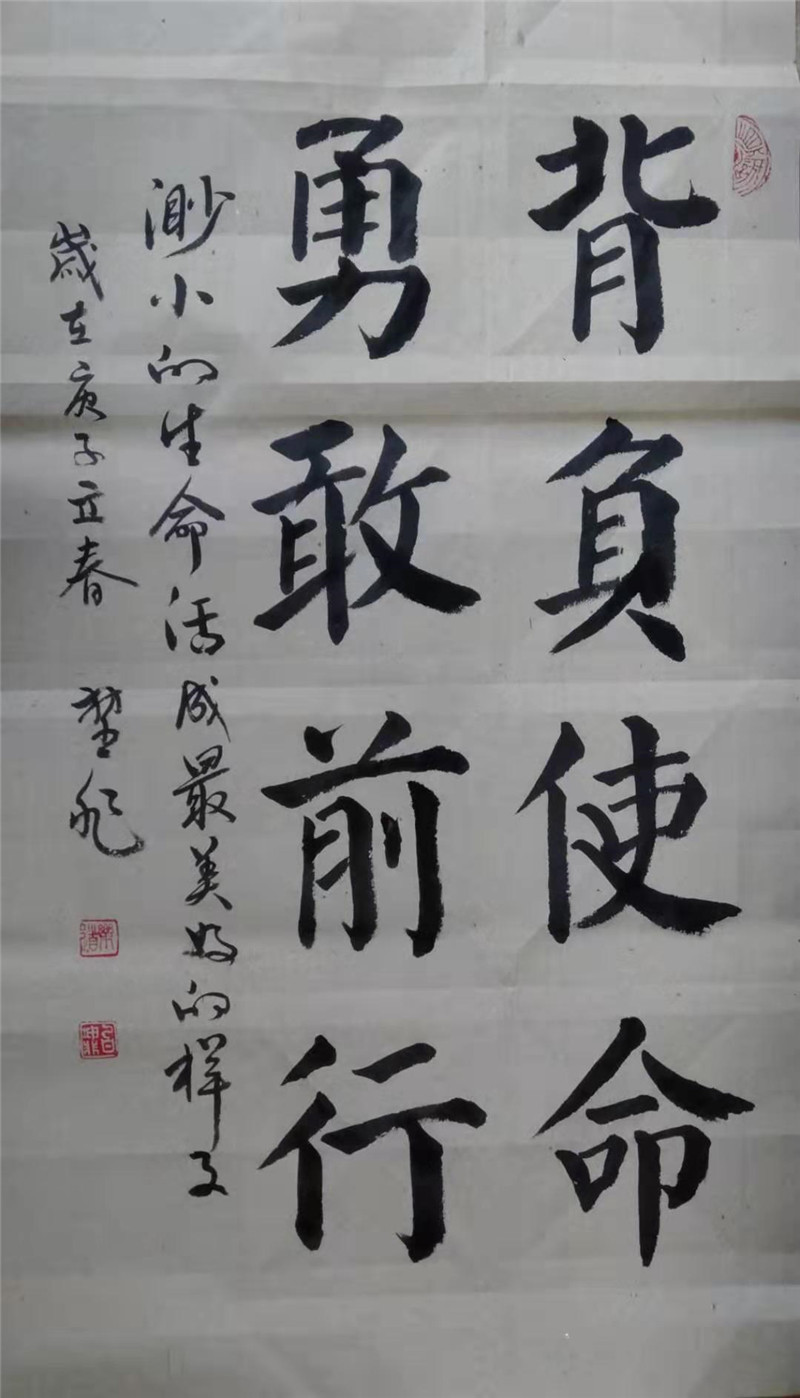 背负使命
勇敢前行
渺小的生命活成最美好的样子
岁在庚子立春